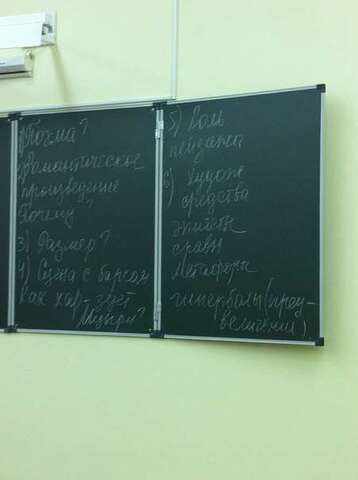 Поэма?
Романтическое
произведение
Почему?
3) Размер?
4) Сцена с барсом
как хар-зует
Мцыри?
5) Роль
пейзажа
6) Художе
средства
эпитеты
сравн
Метафоры
гиперболы (преу-
величения).